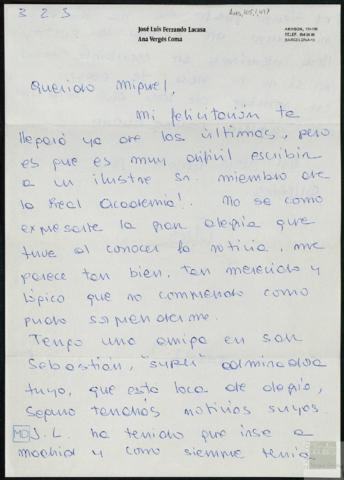 3 2 3
José Luis Ferzando Lacasa
Ana Vergés Coma
BARCELONA
Querido Miguel,
Mi felicitación te
llegará ya de las últimas, pero
es que es muy difícil escribir
a un ilustre Sr. miembro de
la Real Academia!. No se como
expresarte la gran alegría que
tuve al conocer la noticia, me
parece tan bien, tan merecido y
lógico que no comprendo como
pudo sorprenderme.
Tengo una amiga en San
Sebastián, "super" admiradora
tuya, que esta loca de alegría,
seguro tendrás noticias suyas.
MD J.L. ha tenido que irse a
Madrid y como siempre tenía